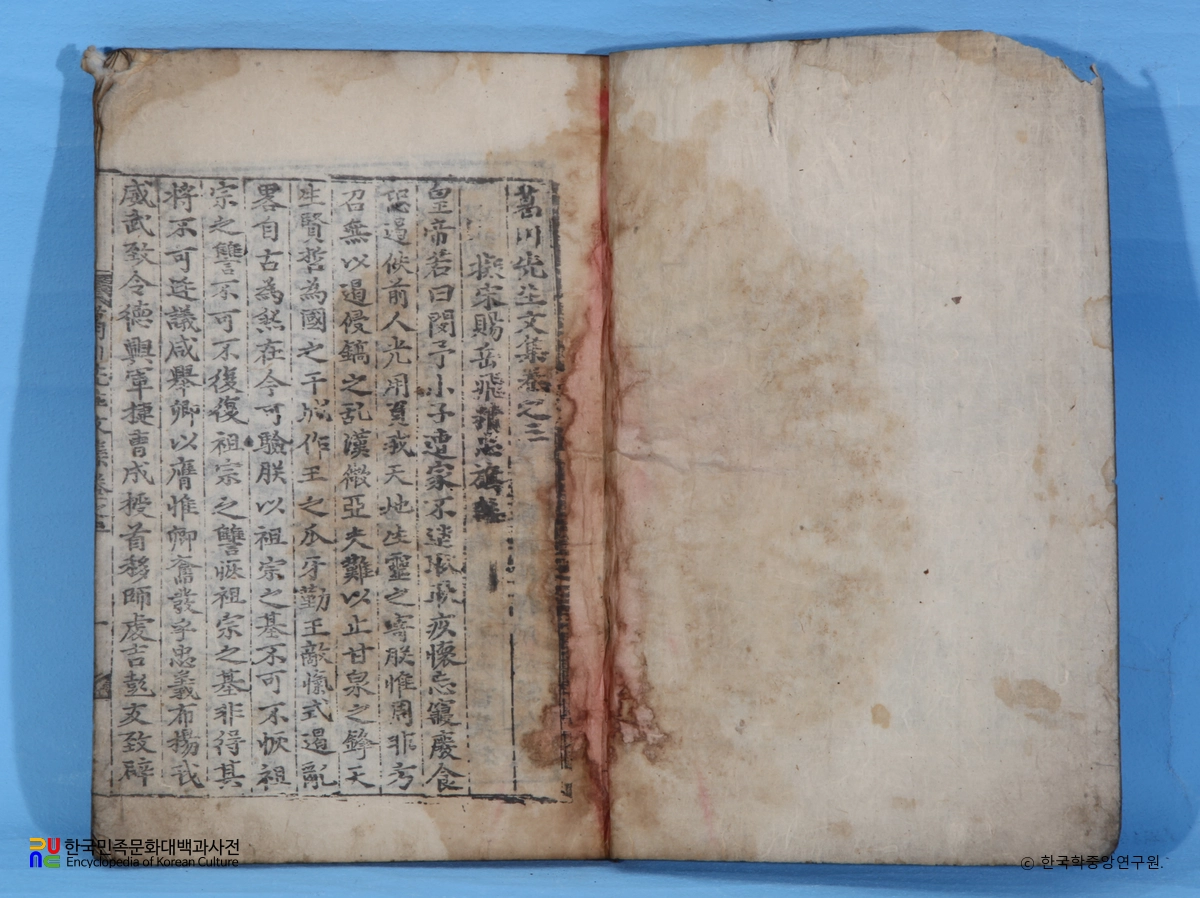 葛川先生文集卷之三
擬宋賜岳飛精忠旗
皇帝若曰閔予小子遭家不造 疾懷忘寢廢食
恐遏佚前人光用 我天地生靈之寄朕惟周非方
召無以遏侵鎬之乱漢微亞夫難以止甘泉之鋒天
生賢哲為國之干城作王之爪牙勤王敵愾式遏亂
畧自古為然在今可驗朕以祖宗之基不可不恢祖
宗之讐不可不復復祖宗之讐恢祖宗之基非得其
將不可廷議咸舉卿以膺惟卿奮發乎忠義布揚我
威武致令德興軍捷曹成授首移師虔吉彭友致辟
葛川先生文集卷之三
一
한국민족문화대백과사전
Encyclopedia of Korean Culture
ⓒ 한국학중앙연구원.